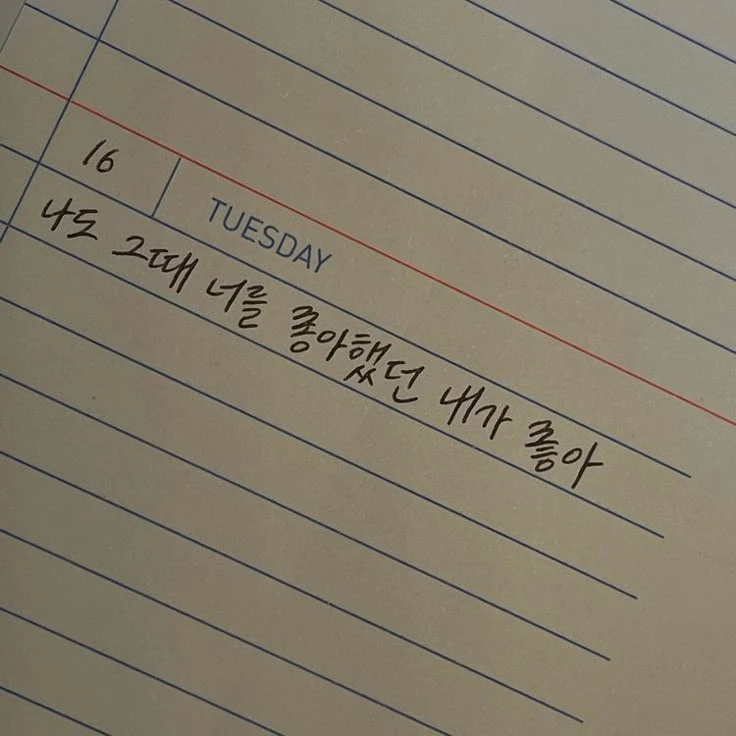 16
TUESDAY
나도 그때 너를 좋아했던 내가 좋아